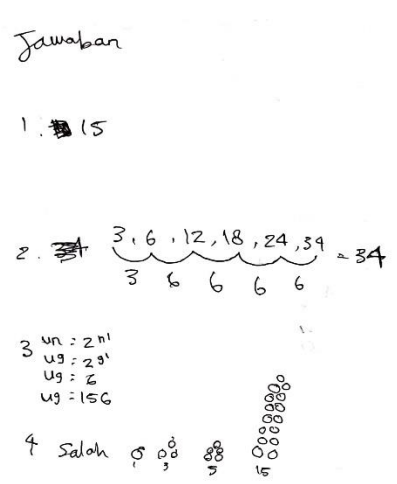 Jawaban
1. 15
2. 3, 6, 12, 18, 24, 34 = 34
3 6 6 6 6
3 un : 2n1
u9 : 2 91
u9 : 6
u9 : 156
4 Salah
1 3 5 15